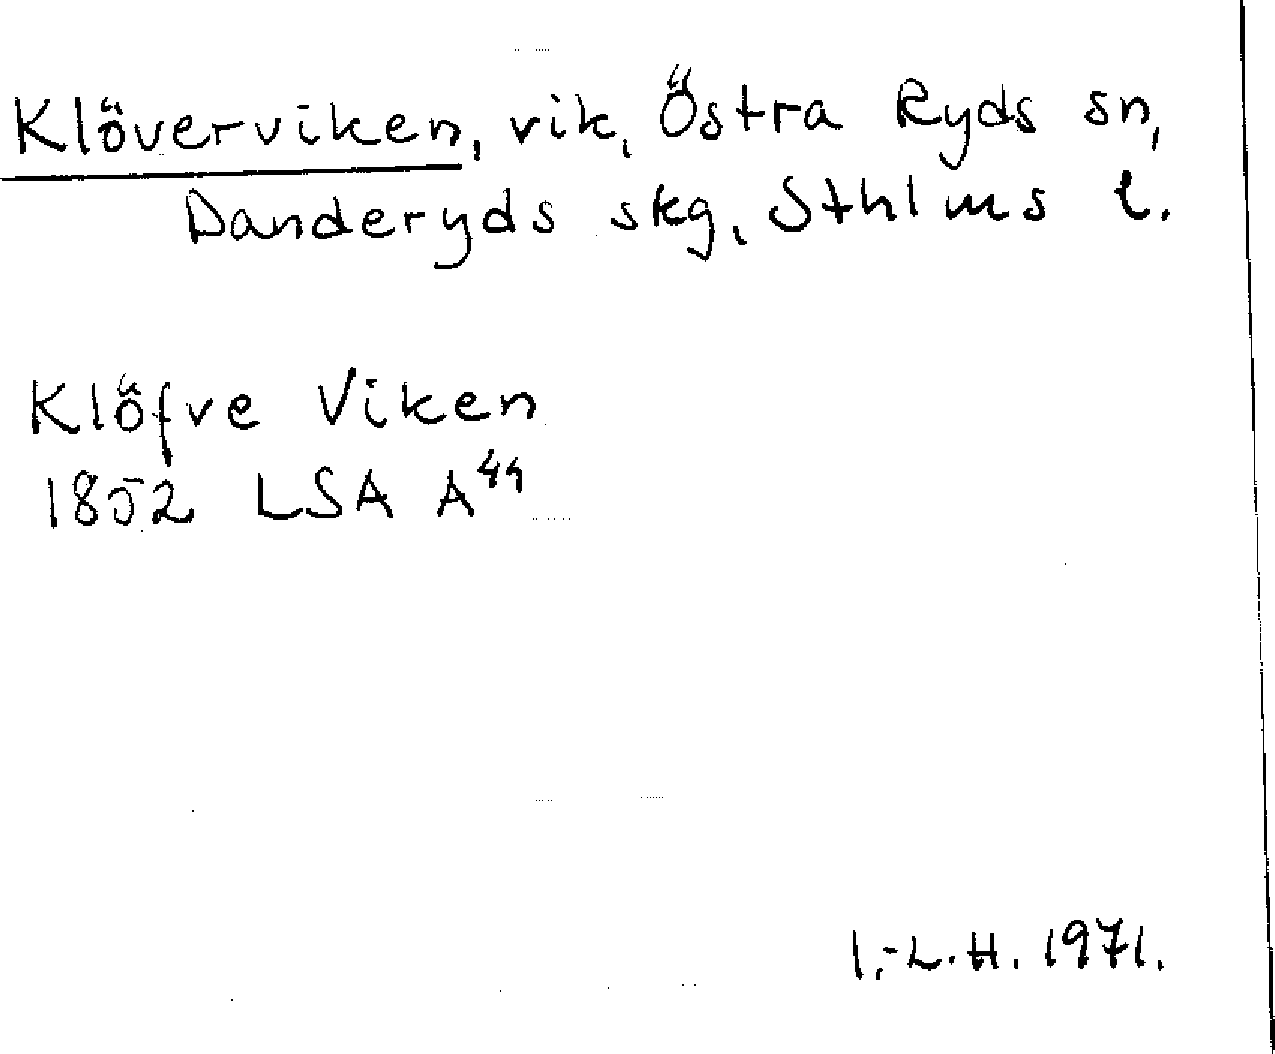 Klöverviken, vik, Östra Ryds sn,
Danderyds skg, Sthlms l.
Klöfve Viken
1852 LSA A⁴⁴
I.-L.H. 1971.